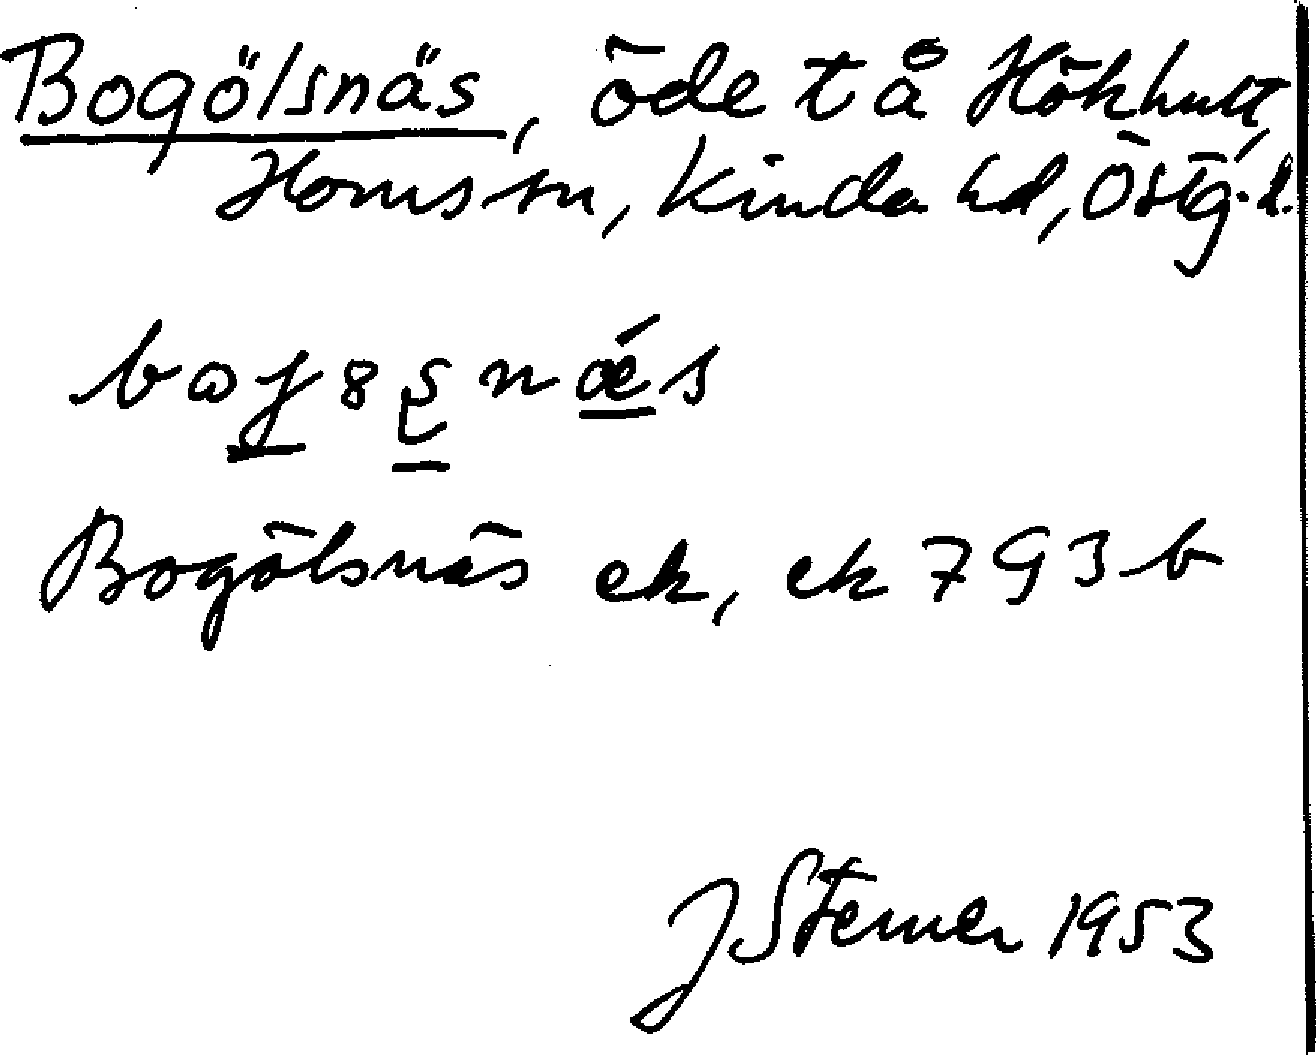 Bogölsnäs, öde t å Hökhult,
Horns sn, Kinda hd, Östg.l.
Bogölsnäs ek, ek 793 b
J Sterner 1953